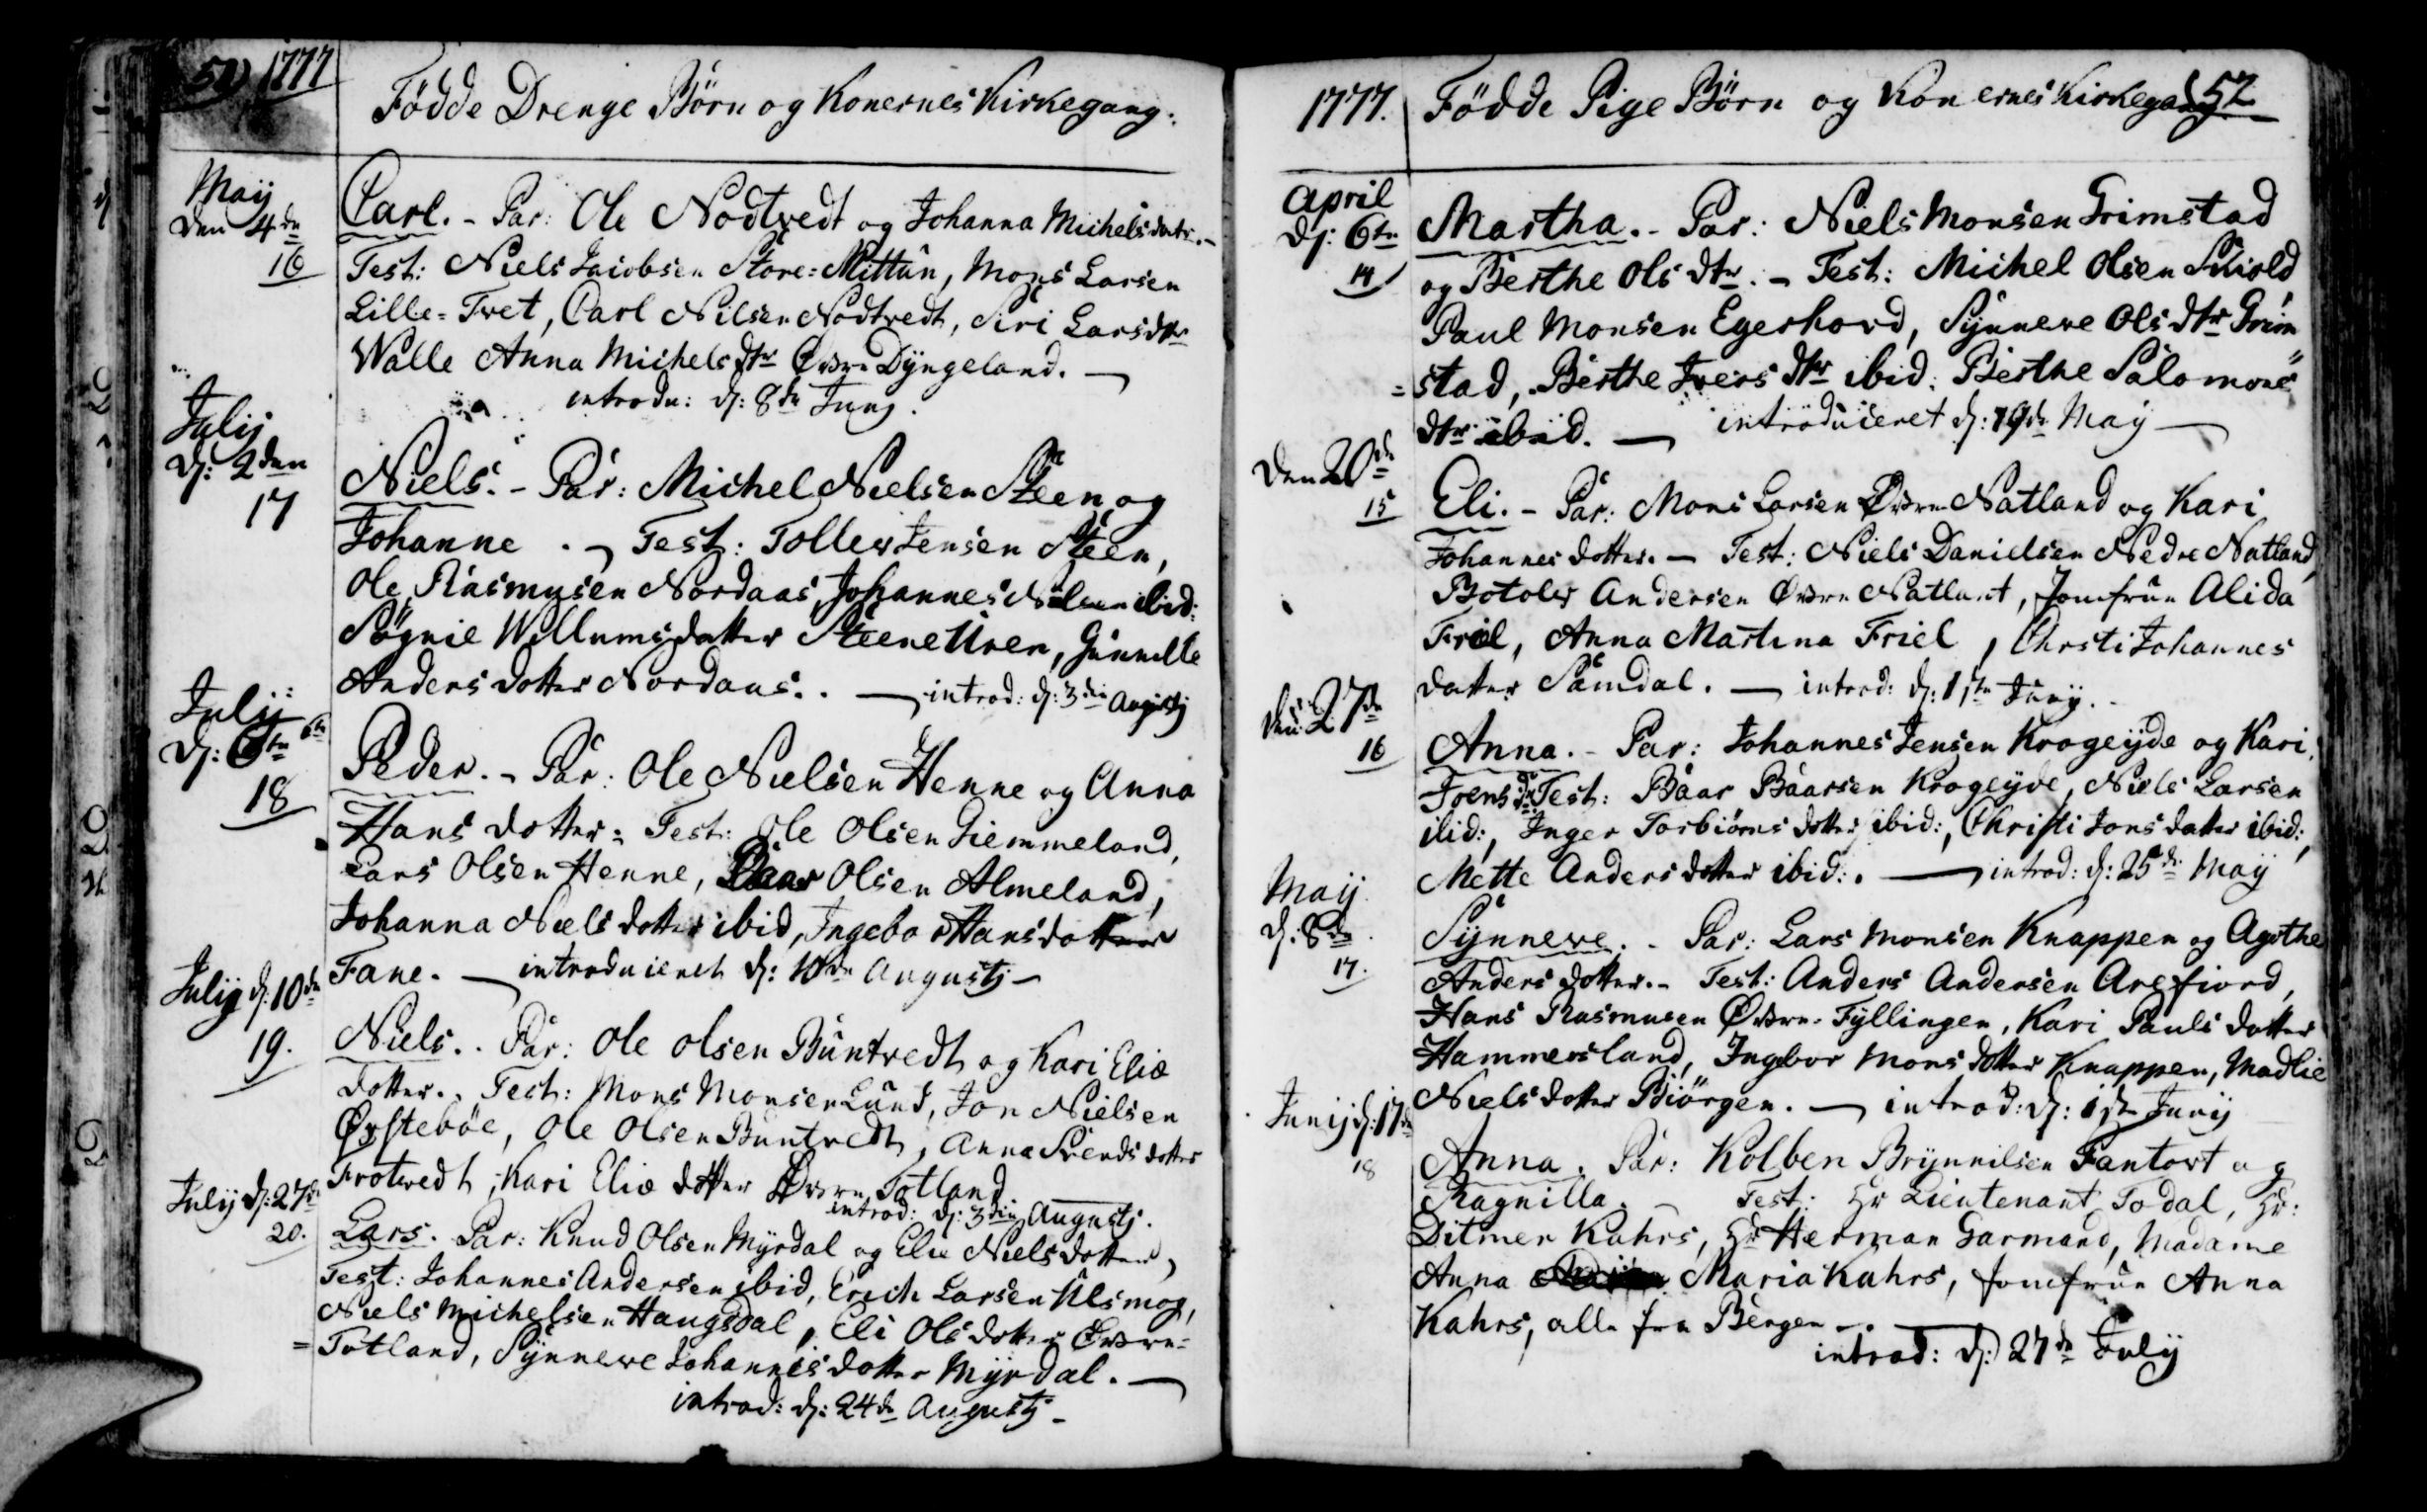 51) 1777
Fødde Drenge Børn og Konernes Kirkegang.
Maij
den 4de
16
Carl. - Par: Ole Nødtvedt og Johanna Michelsdatr. -
Test: Niels Jacobsen Store=Mittun, Mons Larsen
Lille=Tvet, Carl Nilsen Nødtvedt, Siri Larsdtr
Walle Anna Michelsdtr Øvre Dyngeland. —
introdu: d: 8de Junj.
Julij
d: 2den
17
Niels. - Par: Michel Nielsen Steen og
Johanne . - Test: Toller Jensen Steen,
Ole Rasmusen Nordaas, Johannes Nilsen ibid:
Søgnie Willumsdatter Steene Uren, Gunnille
Anders dotter Nordaas. . — introd: d: 3die Augustj
Julij
d: 6te 6te
18
Peder. - Par: Ole Nielsen Henne og Anna
Hans dotter = Test: Ole Olsen Giemmeland,
Lars Olsen Henne, Baar Olsen Almeland,
Johanna Niels dotter ibid, Ingebor Hansdotter
Fane. — introduceret d: 10de Augustj -
Julij d: 10de
19.
Niels. . Par: Ole Olsen Buntvedt og Kari Eliæ
dotter. . Test: Mons Monsen Lund, Jon Nielsen
Øvstebøe, Ole Olsen Buntvedt, Anna Svends dotter
Frotvedt, Kari Eliæ dotter Øvre Totland
introd: d: 3die Augustj.
Julij d: 27de
20.
Lars. Par: Knud Olsen Myrdal og Elie Niels dotter,
Test: Johannes Andersen ibid, Erich Larsen Ulsmog,
Niels Michelsen Haugsdal, Eli Ols dotter Øvre=
=Totland, Synneve Johannis dotter Myrdal. —
introd: d: 24de Augustj -
1777. Fødde Pige Børn og Konernes Kirkegang (52
April
d: 6te
14
Martha. - Par: Niels Monsen Grimstad
og Berthe Ols dtr. - Test: Michel Olsen Skiold
Paul Monsen Egerhovd, Synneve Ols dtr Grim
=stad, Berthe Ivers dtr ibid: Berthe Salomons
dtr ibid. — introduceret d: 19de Maij —
Den 20de
15
Eli. - Par: Mons Larsen Øvre Natland og Kari
Johannes dotter. — Test: Niels Danielsen Nedre Natland,
Botolv Andersen Øvre Natland, Jomfrue Alida
Friel, Anna Martina Friel, Christi Johannes
datter Samdal. — introd: d: 1ste Junij. -
den 27de
16
Anna. - Par: Johannes Jensen Krogeyde og Kari
Joens dtr Test: Baar Baarsen Krogeyde, Niels Larsen
ibid:, Inger Torbiørns dotter ibid:, Christi Jons datter ibid:,
Mette Anders dotter ibid: . — introd: d: 25de Maij
Maij
d: 8de
17.
Synneve. - Par: Lars Monsen Knappen og Agothe
Anders dotter. - Test: Anders Andersen Arefiord,
Hans Rasmusen Øvre Fyllingen, Kari Pauls dotter
Hammersland, Ingebor Mons dotter Knappen, Madlie
Niels dotter Biørgen. — introd: d: 1ste Junij
Junij d: 17de
18
Anna. Par: Kolben Brynnilsen Fantovt og
Ragnilla. - Test: Hr Lieutenant Todal, Hr:
Ditmer Kahrs, Hr Herman Garmand, Madame
Anna Maria Kahrs, Jomfrue Anna
Kahrs, alle fra Bergen —.
introd: d: 27de Julij